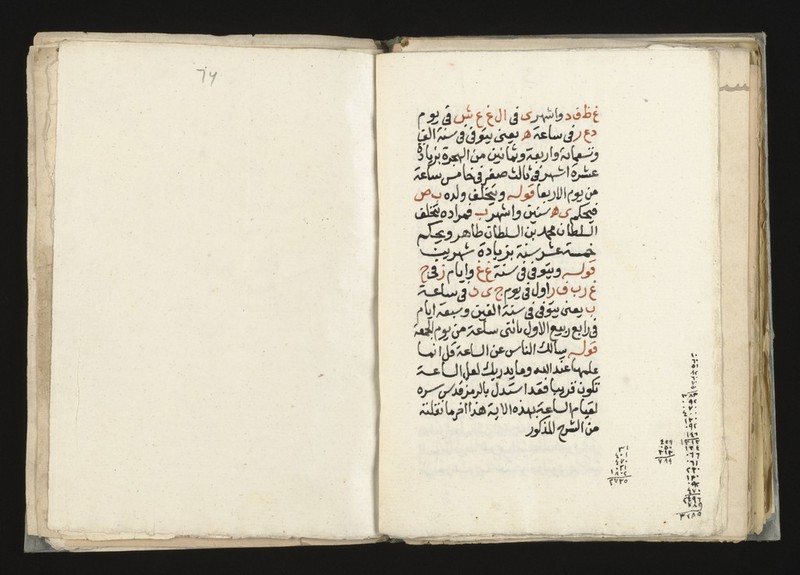 ٦٧
غ ظ ف د واشهر ى فى ال غ غ ع ش فى يوم
د ع ر فى ساعة ه يعنى يتوفى فى سنة الف
وتسعمائة واربعة وثمانين من الهجرة بزيادة
عشرة اشهر فى ثالث صفر فى خامس ساعة
من يوم الاربعا قوله ويتخلف ولده ب ص
فيحكم ى ه سنين واشهر ب فمراده يتخلف
السلطان محمد بن السلطان طاهر ويحكم
خمسة عشر سنة بزيادة شهرين
قوله ويتوفى فى سنة غ غ وايام ز فى ج
غ ر ب ف ر اول فى يوم ج ى د فى ساعة
ب يعنى يتوفى فى سنة الفين وسبعة ايام
فى رابع ربيع الاول ثانى ساعة من يوم الجمعة
قوله يسالك الناس عن الساعة قل انما
علمها عند الله وما يدريك لعل الساعة
تكون قريبا فقد استدل بالرمز قدس سره
لقيام الساعة بهذه الاية هذا اخر ما نقلته
من الشرح المذكور